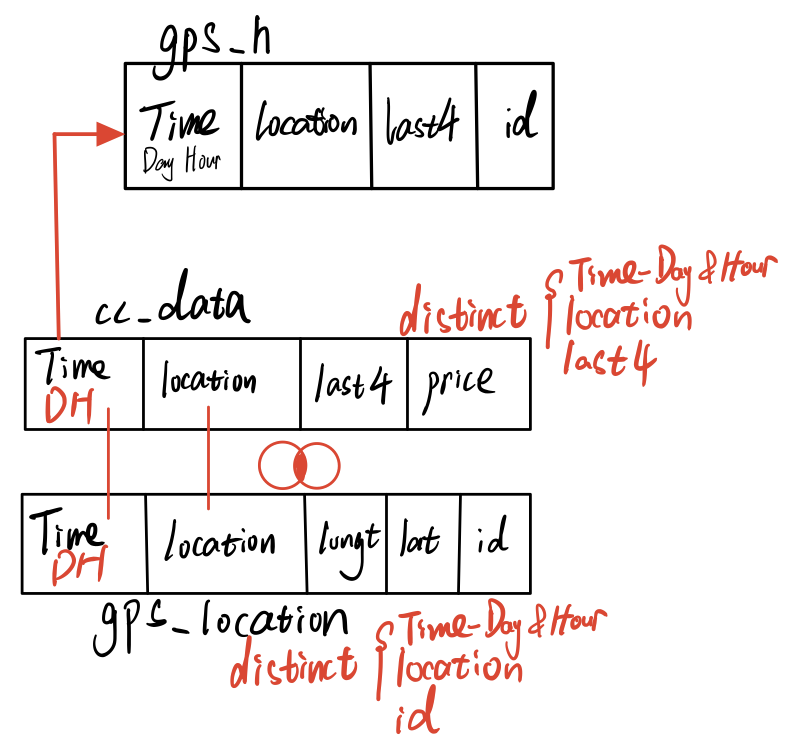 gps_h
Time
Day Hour
location
last4
id
cc_data
distinct
Time-Day & Hour
location
last4
Time
DH
location
last4
price
Time
DH
location
lungt
lat
id
gps_location
distinct
Time-Day & Hour
location
id